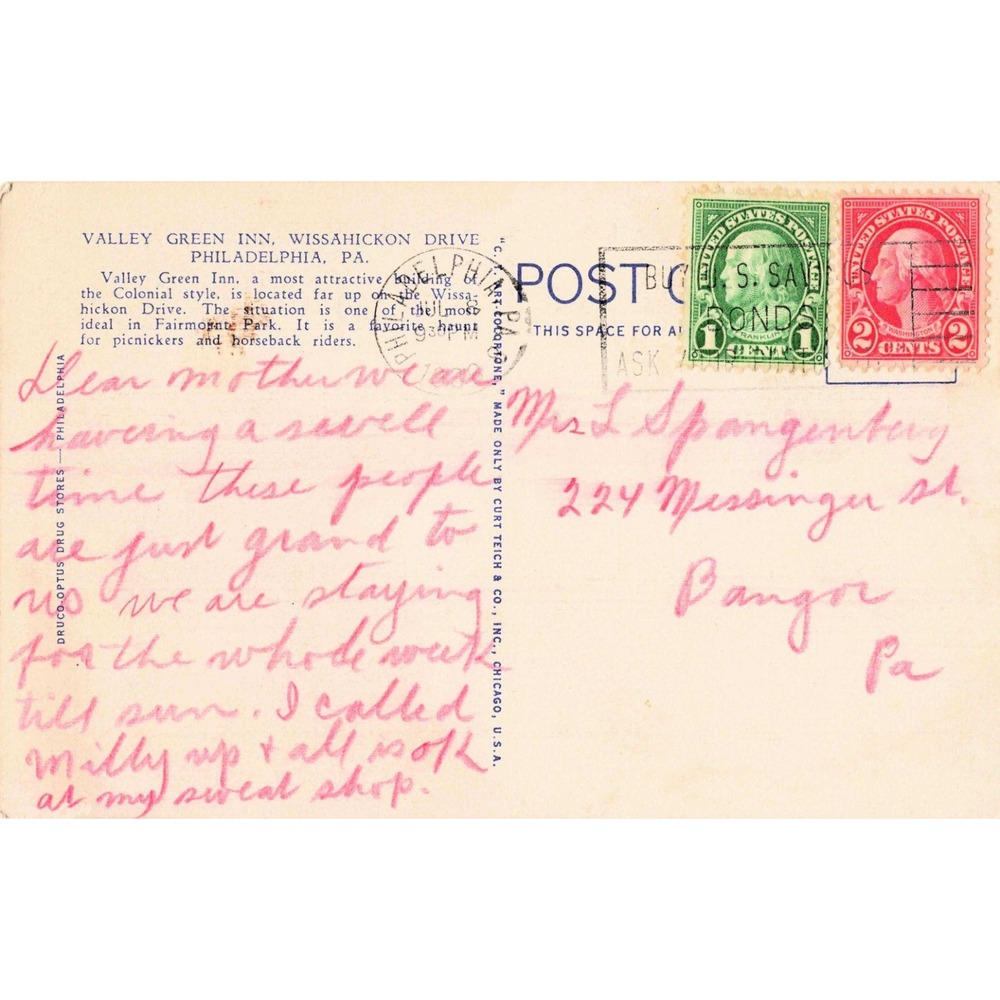 VALLEY GREEN INN, WISSAHICKON DRIVE
PHILADELPHIA, PA.
Valley Green Inn, a most attractive building of
the Colonial style, is located far up on the Wissa-
hickon Drive. The situation is one of the most
ideal in Fairmount Park. It is a favorite haunt
for picnickers and horseback riders.
Dear mother we are
having a swell
time these people
are just grand to
us we are staying
for the whole week
till sun. I called
Milly up + all is ok
at my sweat shop.
DRUCO-OPTUS DRUG STORES — PHILADELPHIA
"C. T. ART-COLORTONE," MADE ONLY BY CURT TEICH & CO., INC., CHICAGO, U.S.A.
PHILADELPHIA PA
JUL 8
930PM
POST C
THIS SPACE FOR A
BUY U. S. SAVINGS
BONDS
ASK YOUR
UNITED STATES POSTAGE
FRANKLIN
1 CENT 1
UNITED STATES POSTAGE
WASHINGTON
2 CENTS 2
Mrs L Spangenberg
224 Messinger st.
Bangor
Pa